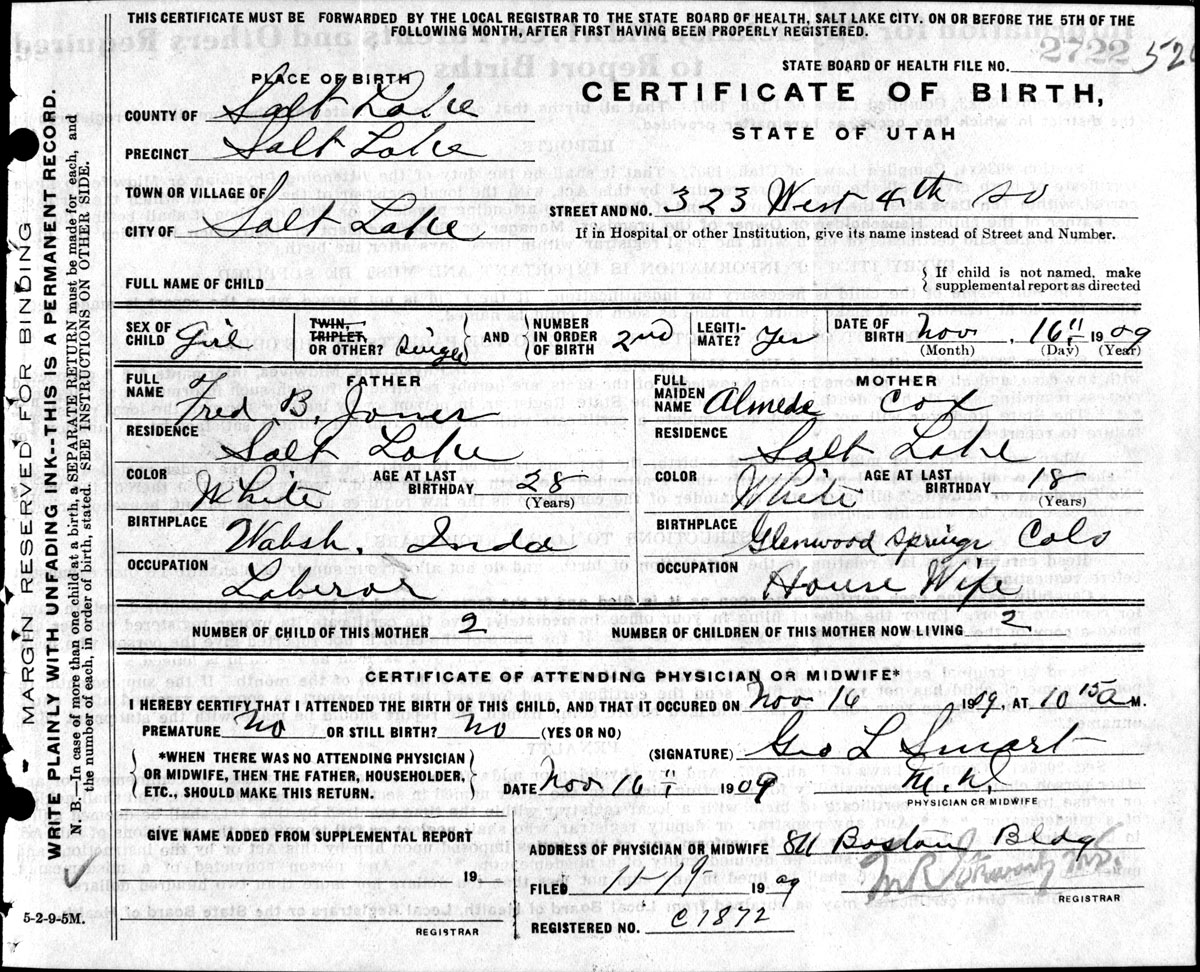 THIS CERTIFICATE MUST BE FORWARDED BY THE LOCAL REGISTRAR TO THE STATE BOARD OF HEALTH, SALT LAKE CITY. ON OR BEFORE THE 5TH OF THE
FOLLOWING MONTH, AFTER FIRST HAVING BEEN PROPERLY REGISTERED.
STATE BOARD OF HEALTH FILE NO. 2722
PLACE OF BIRTH
CERTIFICATE OF BIRTH,
STATE OF UTAH
COUNTY OF Salt Lake
PRECINCT Salt Lake
TOWN OR VILLAGE OF
CITY OF Salt Lake
STREET AND NO. 323 West 4th So
If in Hospital or other Institution, give its name instead of Street and Number.
FULL NAME OF CHILD
If child is not named, make
supplemental report as directed
SEX OF CHILD Girl
TWIN, TRIPLET, OR OTHER? Single
AND NUMBER IN ORDER OF BIRTH 2nd
LEGITIMATE? Yes
DATE OF BIRTH Nov. 16", 1909
(Month) (Day) (Year)
FATHER
FULL NAME of Fred B. Jones
RESIDENCE Salt Lake
COLOR White
AGE AT LAST BIRTHDAY 28 (Years)
BIRTHPLACE Wabsh. Inda
OCCUPATION Laberor
MOTHER
FULL MAIDEN NAME Almeda Cox
RESIDENCE Salt Lake
COLOR White
AGE AT LAST BIRTHDAY 18 (Years)
BIRTHPLACE Glenwood Springs Colo
OCCUPATION House Wife
NUMBER OF CHILD OF THIS MOTHER 2
NUMBER OF CHILDREN OF THIS MOTHER NOW LIVING 2
CERTIFICATE OF ATTENDING PHYSICIAN OR MIDWIFE*
I HEREBY CERTIFY THAT I ATTENDED THE BIRTH OF THIS CHILD, AND THAT IT OCCURED ON Nov 16 1909, AT 10 15 a M.
PREMATURE No OR STILL BIRTH? No (YES OR NO)
(SIGNATURE) Geo L Smart
M.D.
PHYSICIAN OR MIDWIFE
*WHEN THERE WAS NO ATTENDING PHYSICIAN
OR MIDWIFE, THEN THE FATHER, HOUSEHOLDER,
ETC., SHOULD MAKE THIS RETURN.
DATE Nov 16" 1909
GIVE NAME ADDED FROM SUPPLEMENTAL REPORT
19
REGISTRAR
ADDRESS OF PHYSICIAN OR MIDWIFE 811 Boston Bldg
FILED 1909
REGISTRAR
REGISTERED NO. C1872
5-2-9-5M.
MARGIN RESERVED FOR BINDING
WRITE PLAINLY WITH UNFADING INK--THIS IS A PERMANENT RECORD.
N. B.—In case of more than one child at a birth, a SEPARATE RETURN must be made for each, and
the number of each, in order of birth, stated. SEE INSTRUCTIONS ON OTHER SIDE.